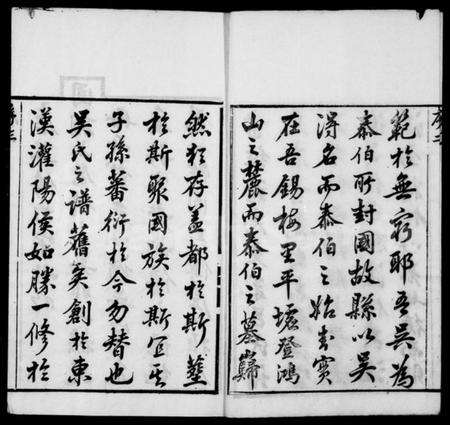 範於無窮耶吾吳為
泰伯所封國故縣以吳
得名而泰伯之始封實
在吾錫梅里平墟登鴻
山之麓而泰伯之墓巋
然猶存蓋都於斯塟
於斯聚國族於斯宜其
子孫蕃衍於今勿替也
吳氏之譜舊矣創於東
漢灌陽侯如勝一修於